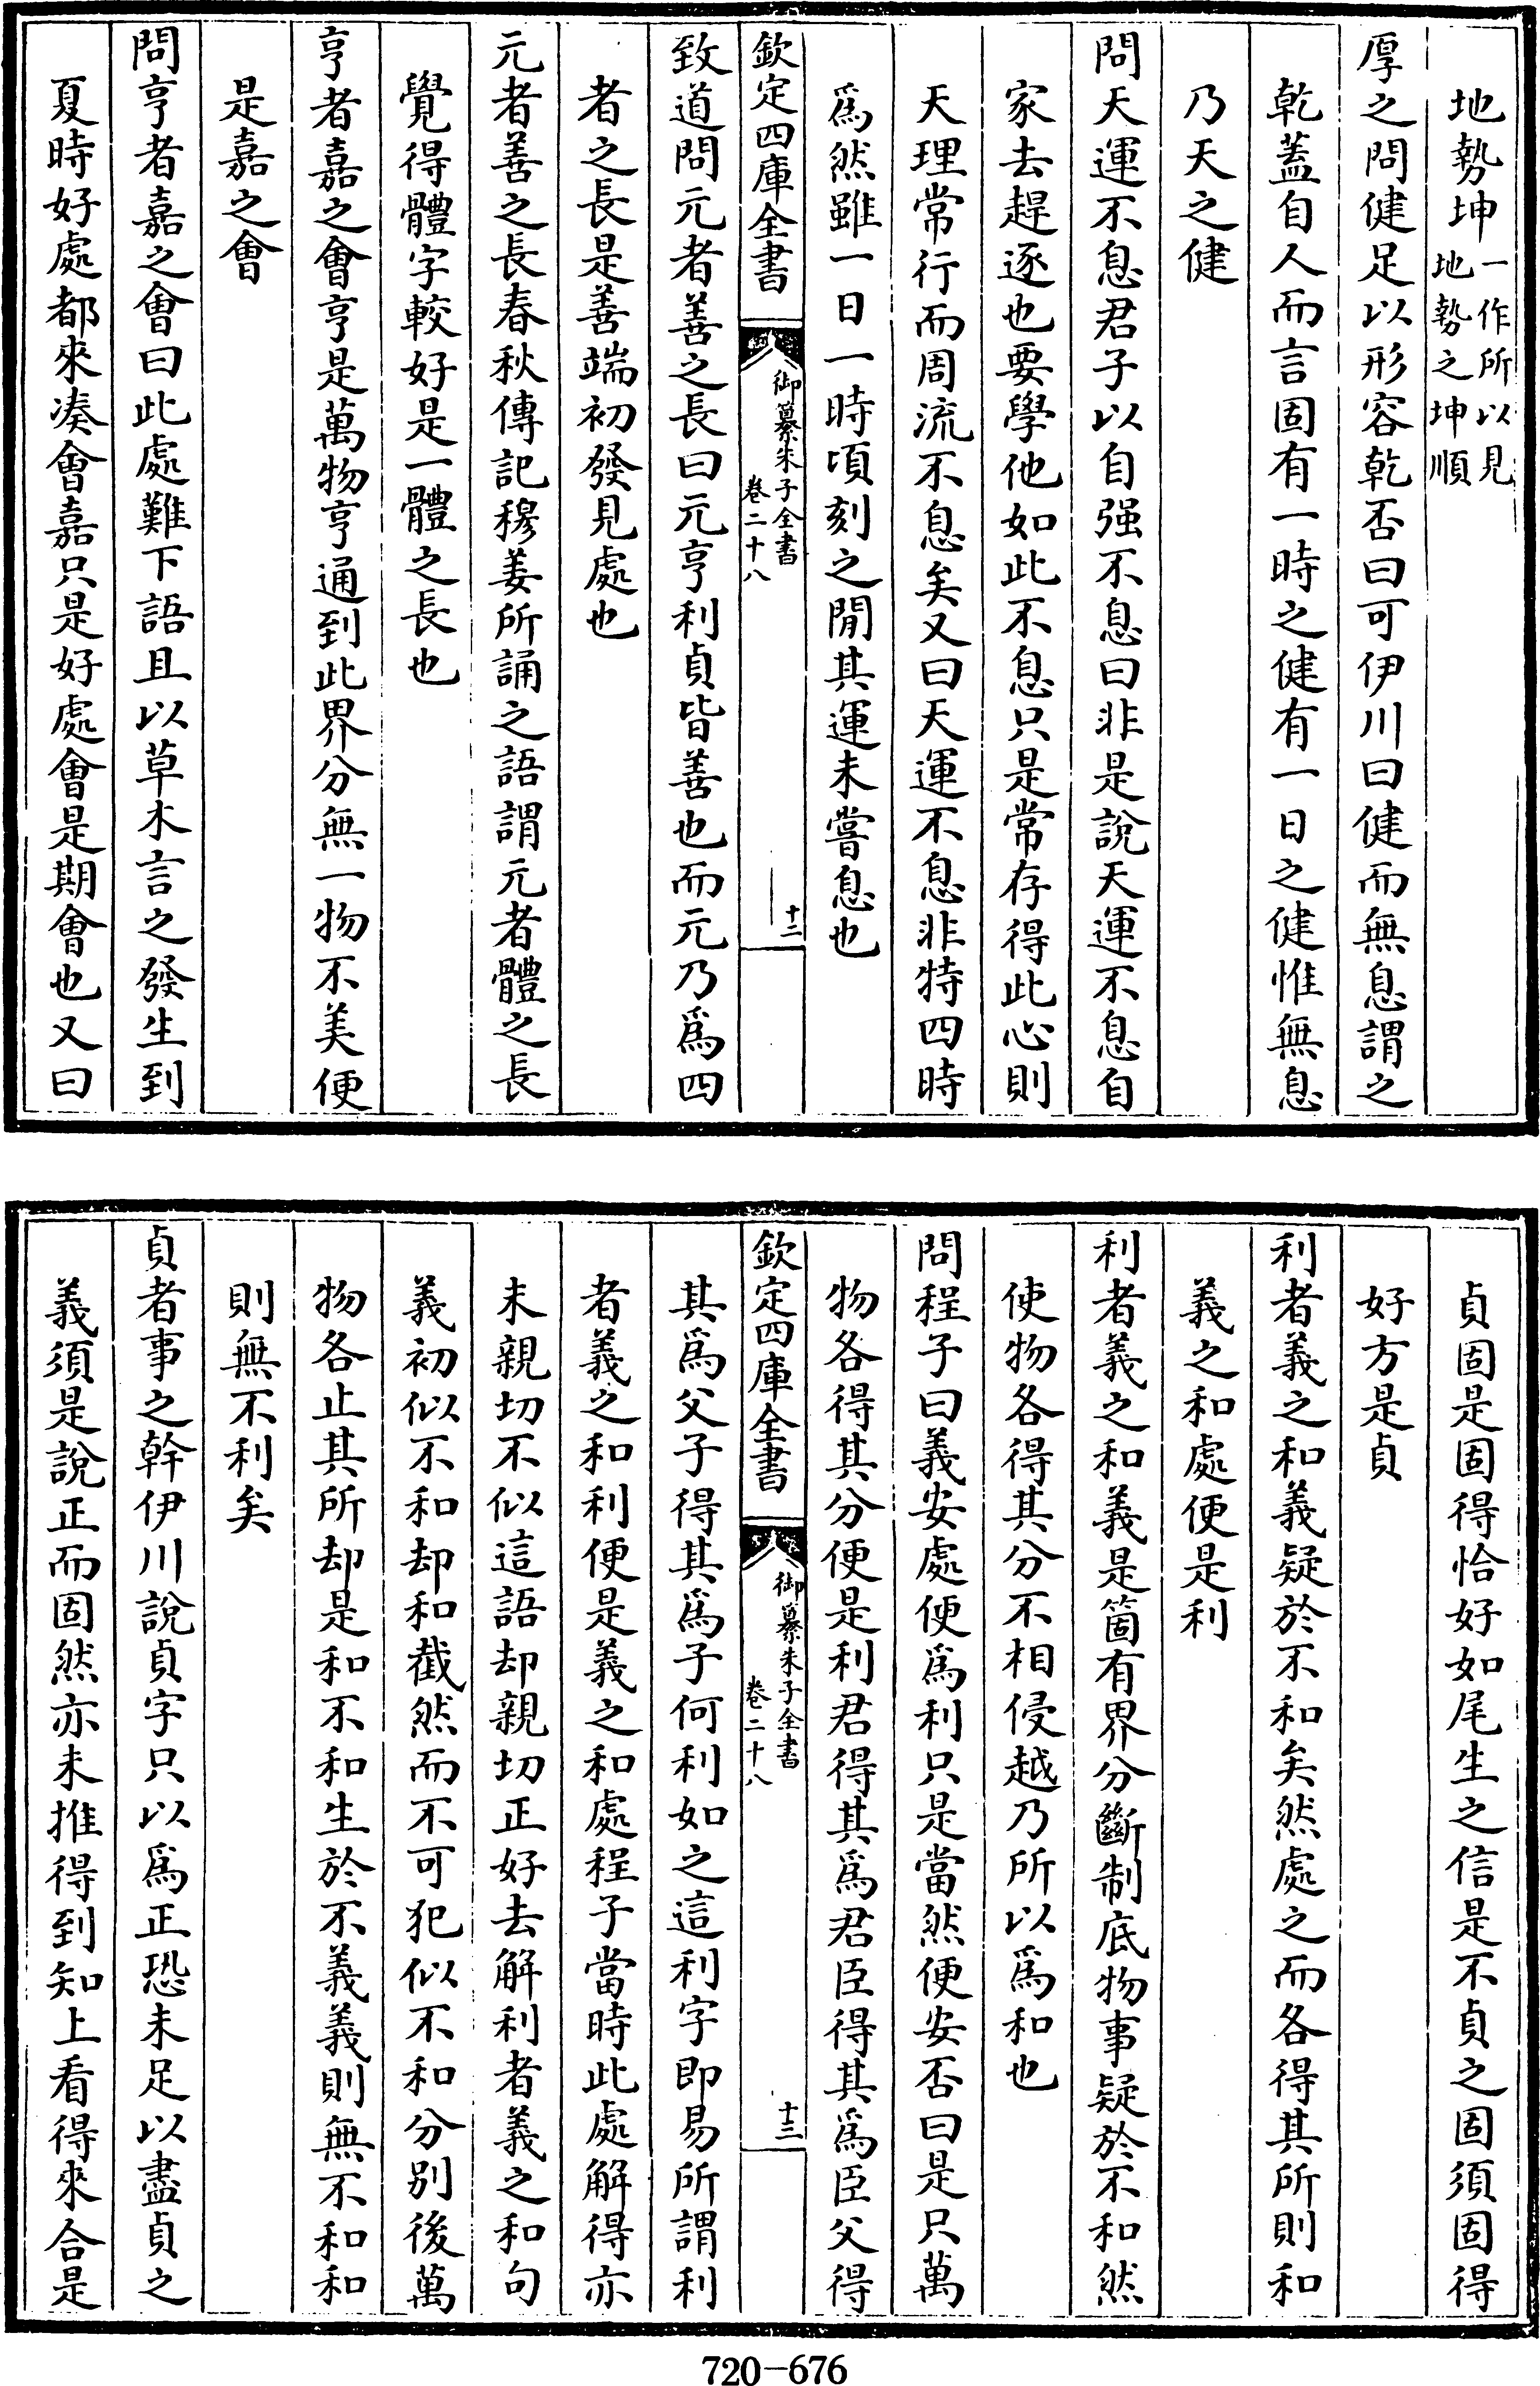 地勢坤一作所以見地勢之坤順
厚之問健足以形容乾否曰可伊川曰健而無息謂之
乾蓋自人而言固有一時之健有一日之健惟無息
乃天之健
問天運不息君子以自强不息曰非是說天運不息自
家去趕逐也要學他如此不息只是常存得此心則
天理常行而周流不息矣又曰天運不息非特四時
爲然雖一日一時頃刻之閒其運未嘗息也
欽定四庫全書
御纂朱子全書
卷二十八
十二
致道問元者善之長曰元亨利貞皆善也而元乃爲四
者之長是善端初發見處也
元者善之長春秋傳記穆姜所誦之語謂元者體之長
覺得體字較好是一體之長也
亨者嘉之會亨是萬物亨通到此界分無一物不美便
是嘉之會
問亨者嘉之會曰此處難下語且以草木言之發生到
夏時好處都來湊會嘉只是好處會是期會也又曰
貞固是固得恰好如尾生之信是不貞之固須固得
好方是貞
利者義之和義疑於不和矣然處之而各得其所則和
義之和處便是利
利者義之和義是箇有界分斷制底物事疑於不和然
使物各得其分不相侵越乃所以爲和也
問程子曰義安處便爲利只是當然便安否曰是只萬
物各得其分便是利君得其爲君臣得其爲臣父得
欽定四庫全書
御纂朱子全書
卷二十八
十三
其爲父子得其爲子何利如之這利字即易所謂利
者義之和利便是義之和處程子當時此處解得亦
未親切不似這語却親切正好去解利者義之和句
義初似不和却和截然而不可犯似不和分別後萬
物各止其所却是和不和生於不義義則無不和和
則無不利矣
貞者事之幹伊川說貞字只以爲正恐未足以盡貞之
義須是說正而固然亦未推得到知上看得來合是
720-676